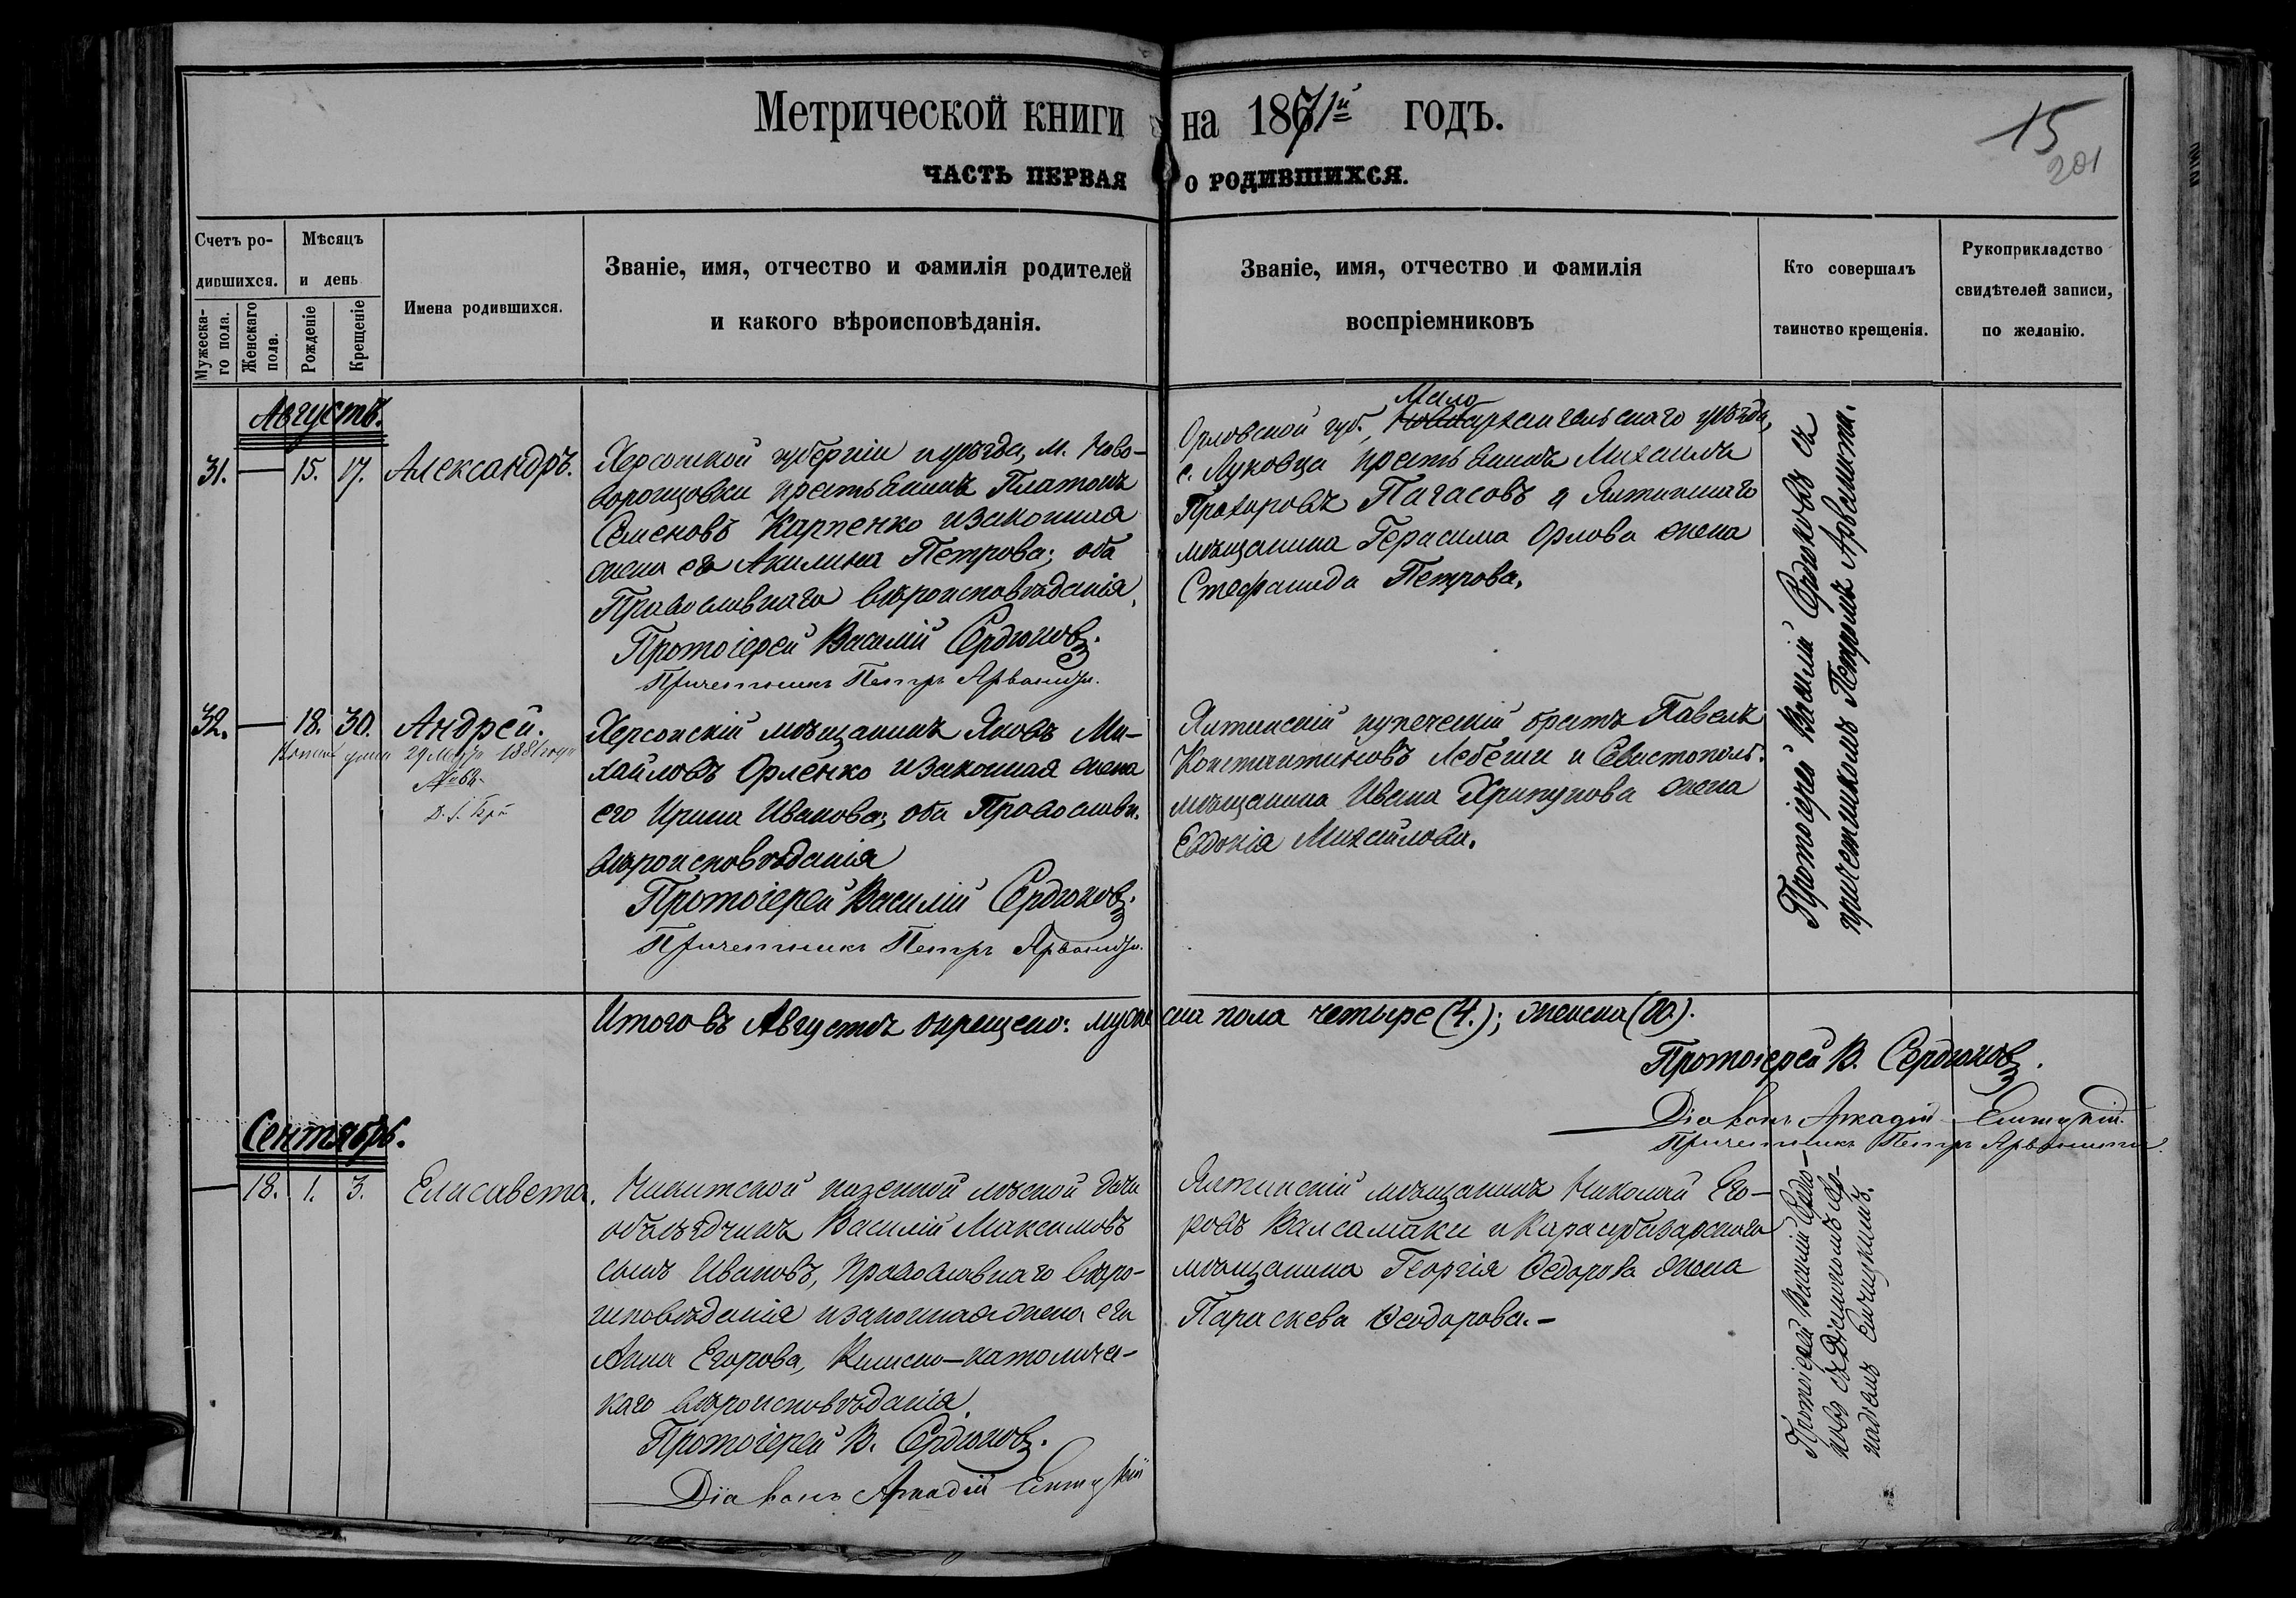 Метрической книги на 1871й годъ.
ЧАСТЬ ПЕРВАЯ О РОДИВШИХСЯ.
15
201
Счетъ ро-
дившихся.
Мужеска-
го пола.
Женскаго
пола.
Мѣсяцъ
и день
Рожденіе
Крещеніе
Имена родившихся.
Званіе, имя, отчество и фамилія родителей
и какого вѣроисповѣданія.
Званіе, имя, отчество и фамилія
воспріемниковъ
Кто совершалъ
таинство крещенія.
Рукоприкладство
свидѣтелей записи,
по желанію.
Августъ.
31. — 15. 17. Александръ.
Херсонской губерніи и уѣзда, м. Ново-
воронцовки крестьянинъ Платонъ
Семеновъ Карпенко и законная
жена его Акилина Петрова; оба
Православнаго вѣроисповѣданія.
Протоіерей Василій Сердюковъ.
Причетникъ Петръ Арванити.
Мало
Орловской губ. архангельскаго уѣзда,
с. Луковца крестьянинъ Михаилъ
Прохоровъ Пагасовъ и Ялтинскаго
мѣщанина Герасима Орлова жена
Стефанида Петрова.
Протоіерей Василій Сердюковъ съ
причетникомъ Петромъ Арванити.
32. — 18. 30. Андрей.
29 Марта 1881 года
Херсонскій мѣщанинъ Яковъ Ми-
хайловъ Орленко и законная жена
его Ирина Иванова; оба Православн.
вѣроисповѣданія
Протоіерей Василій Сердюковъ.
Причетникъ Петръ Арванити.
Ялтинскій купеческій братъ Павелъ
Константиновъ Лебеши и Севастополь.
мѣщанина Ивана Хрипунова жена
Евдокія Михайлова.
Итого въ Августѣ окрещено: мужеска пола четыре (4.); женска (00.).
Протоіерей В. Сердюковъ.
Діаконъ Аркадій
Причетникъ Петръ Арванити.
Сентябрь.
— 18. 1. 3. Елисавета.
Никитской казенной лѣсной дачи
объѣздчикъ Василій Максимовъ
сынъ Ивановъ, православнаго вѣро-
исповѣданія и законная жена его
Анна Егорова, Римско-католичес-
каго вѣроисповѣданія.
Протоіерей В. Сердюковъ.
Діаконъ Аркадій
Ялтинскій мѣщанинъ Николай Его-
ровъ Валсамаки и Карасубазарскаго
мѣщанина Георгія Ѳедорова жена
Параскева Ѳеодорова.—
Протоіерей Василій Сердю-
ковъ съ Діакономъ Ар-
кадіемъ